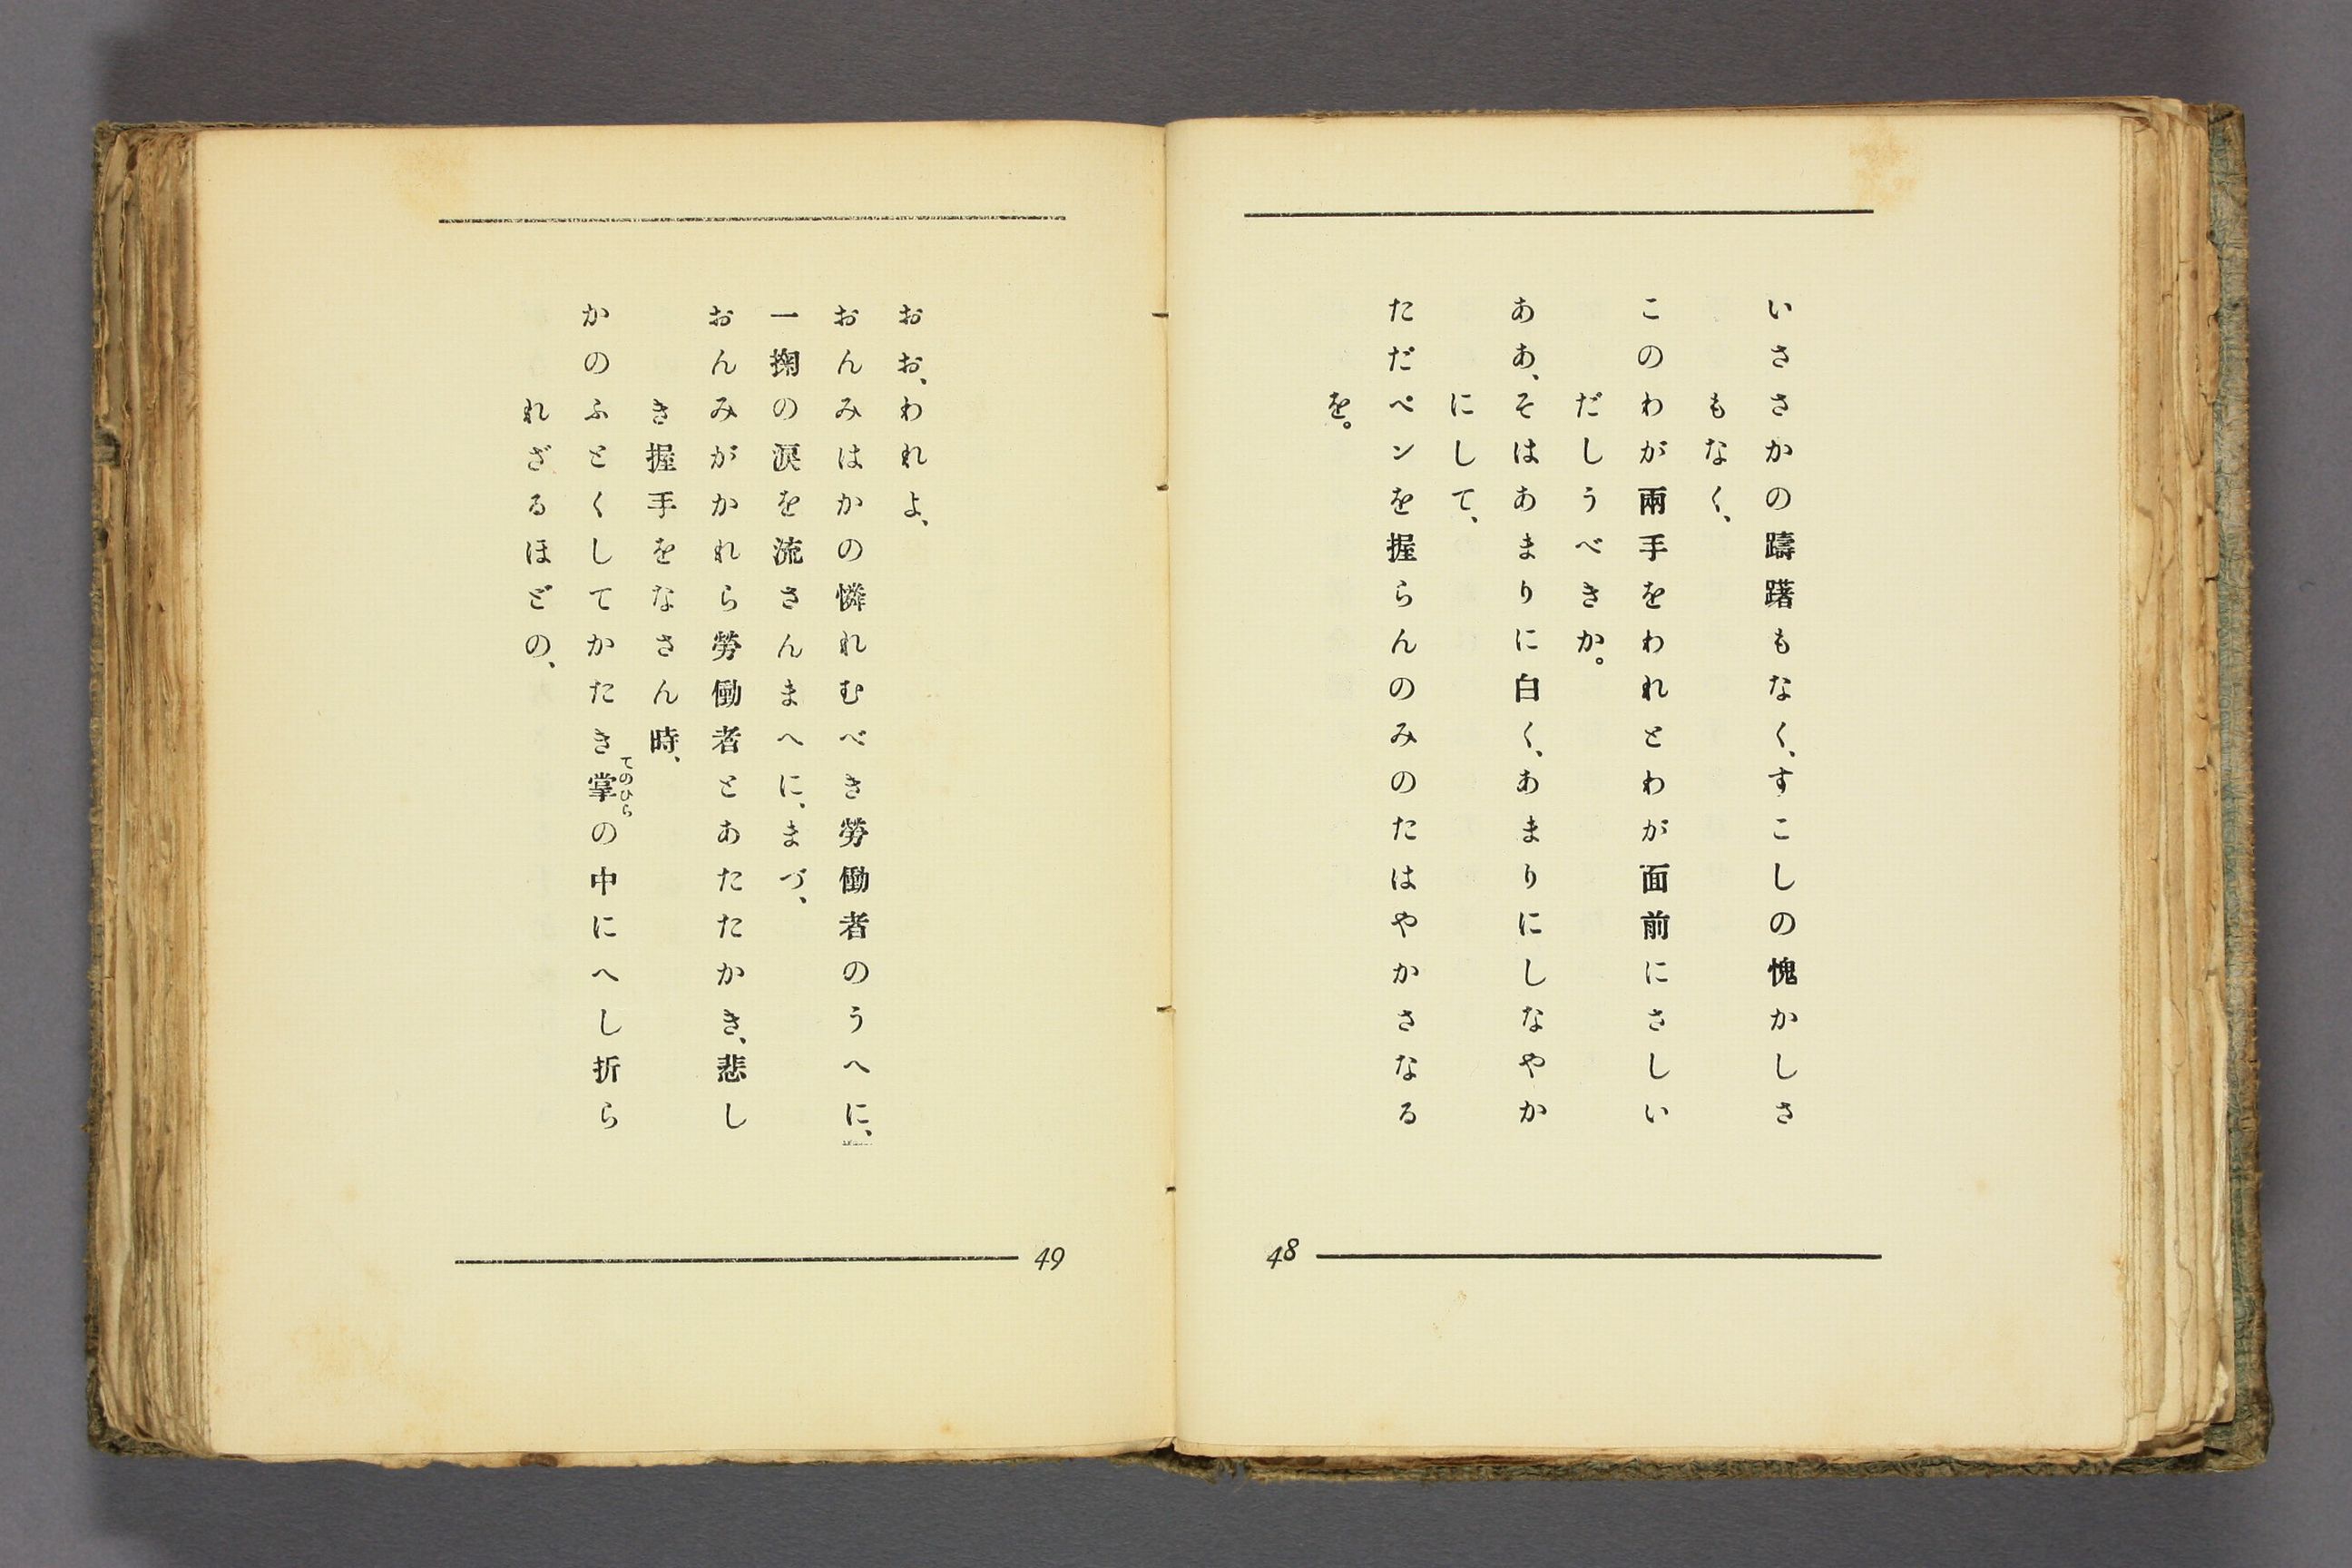 いささかの躊躇もなく、すこしの愧かしさ
もなく、
このわが兩手をわれとわが面前にさしい
だしうべきか。
ああ、そはあまりに白く、あまりにしなやか
にして、
ただペンを握らんのみのたはやかさなる
を。
48
おお、われよ、
おんみはかの憐れむべき勞働者のうへに、
一掬の涙を流さんまへに、まづ、
おんみがかれら勞働者とあたたかき、悲し
き握手をなさん時、
かのふとくしてかたき掌の中にへし折ら
てのひら
れざるほどの、
49